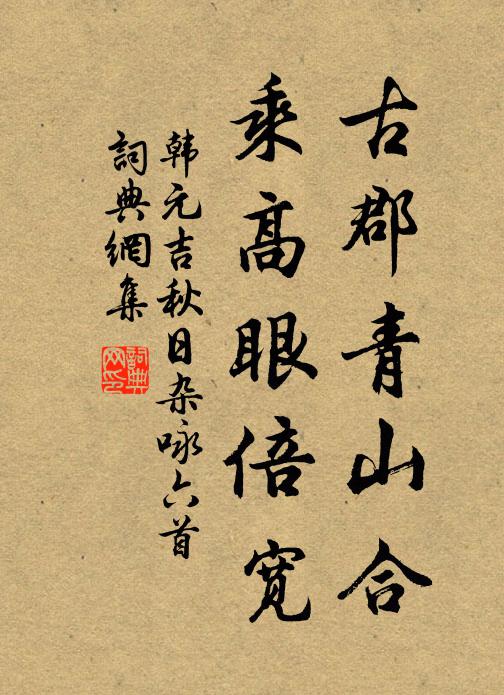 古郡青山合
乘高眼倍宽
韩元吉秋日杂咏六首
詞典網集
詞典网印